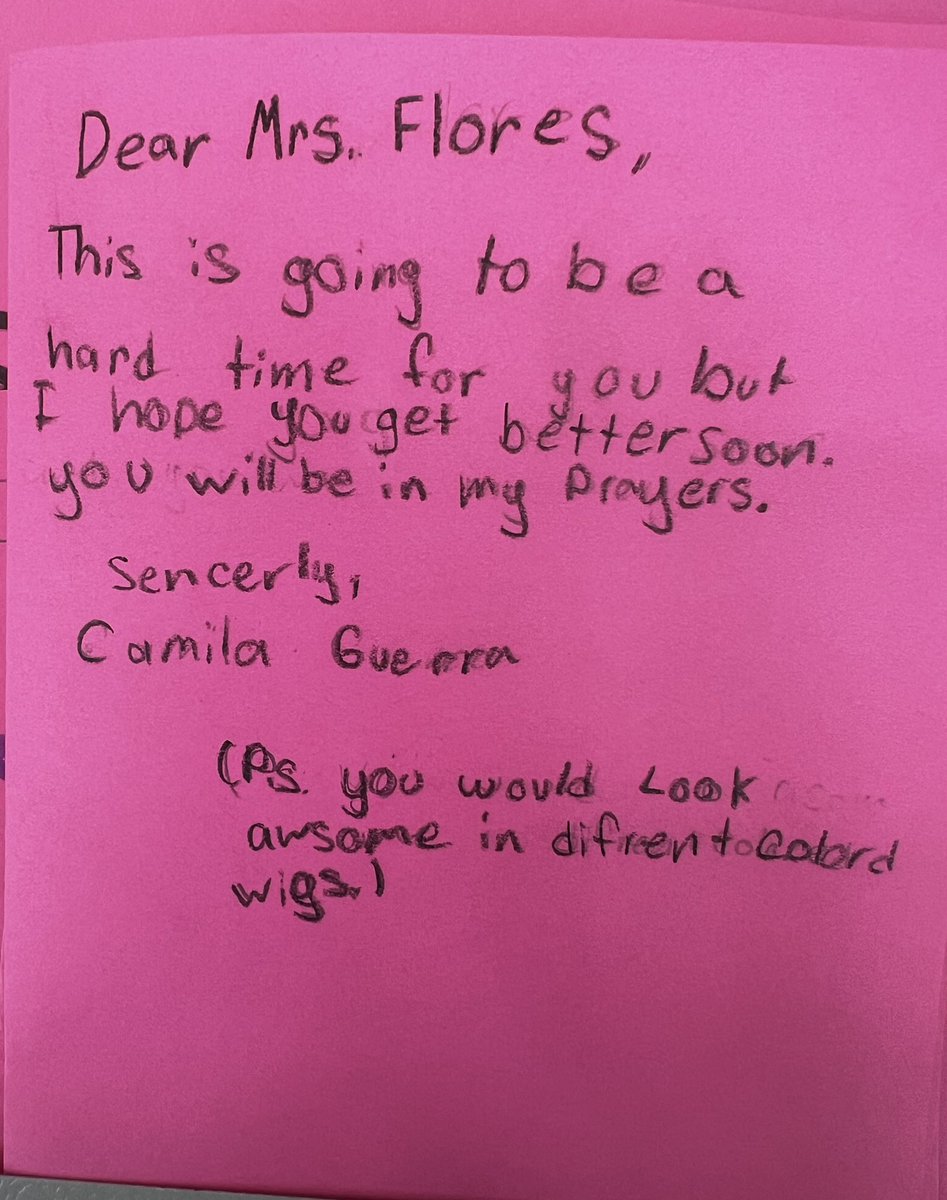 Dear Mrs. Flores,
This is going to be a
hard time for you but
I hope you get better soon.
you will be in my Prayers.
Sencerly,
Camila Guerra
(Ps. you would Look
awsome in difrent colord
wigs.)